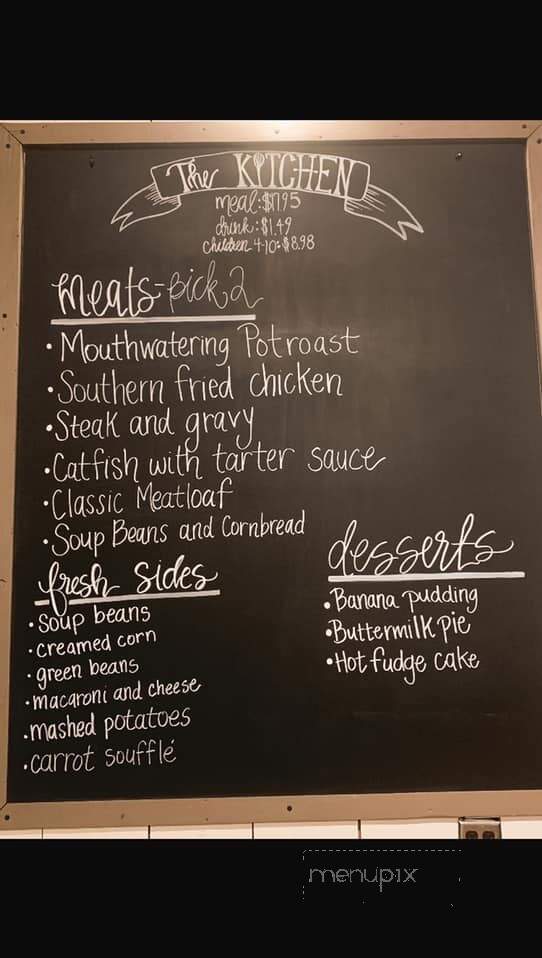 The KITCHEN
meal: $17.95
drink: $1.49
children 4-10: $8.98
meats-pick 2
• Mouthwatering Potroast
• Southern fried chicken
• Steak and gravy
• Catfish with tarter sauce
• Classic Meatloaf
• Soup Beans and Cornbread
fresh sides
• soup beans
• creamed corn
• green beans
• macaroni and cheese
• mashed potatoes
• carrot soufflé
desserts
• Banana pudding
• Buttermilk pie
• Hot fudge cake
menupix